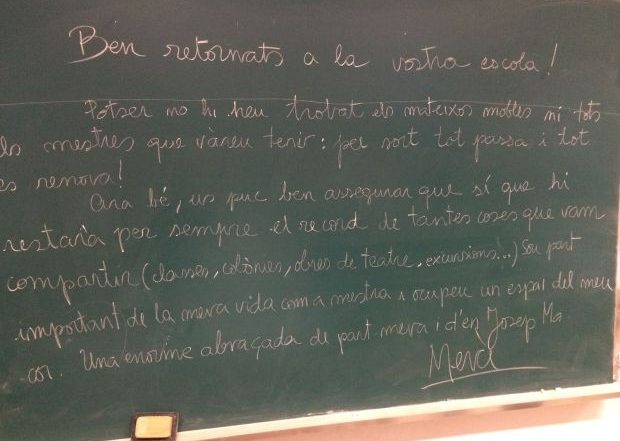 Ben retornats a la vostra escola!
Potser no hi heu trobat els mateixos mobles ni tots
els mestres que vàreu tenir: per sort tot passa i tot
es renova!
Ara bé, us puc ben assegurar que sí que hi
restarà per sempre el record de tantes coses que vam
compartir (classes, colònies, obres de teatre, excursions...) Sou part
important de la meva vida com a mestra i ocupeu un espai del meu
cor. Una enorme abraçada de part meva i d'en Josep Ma
Mercè